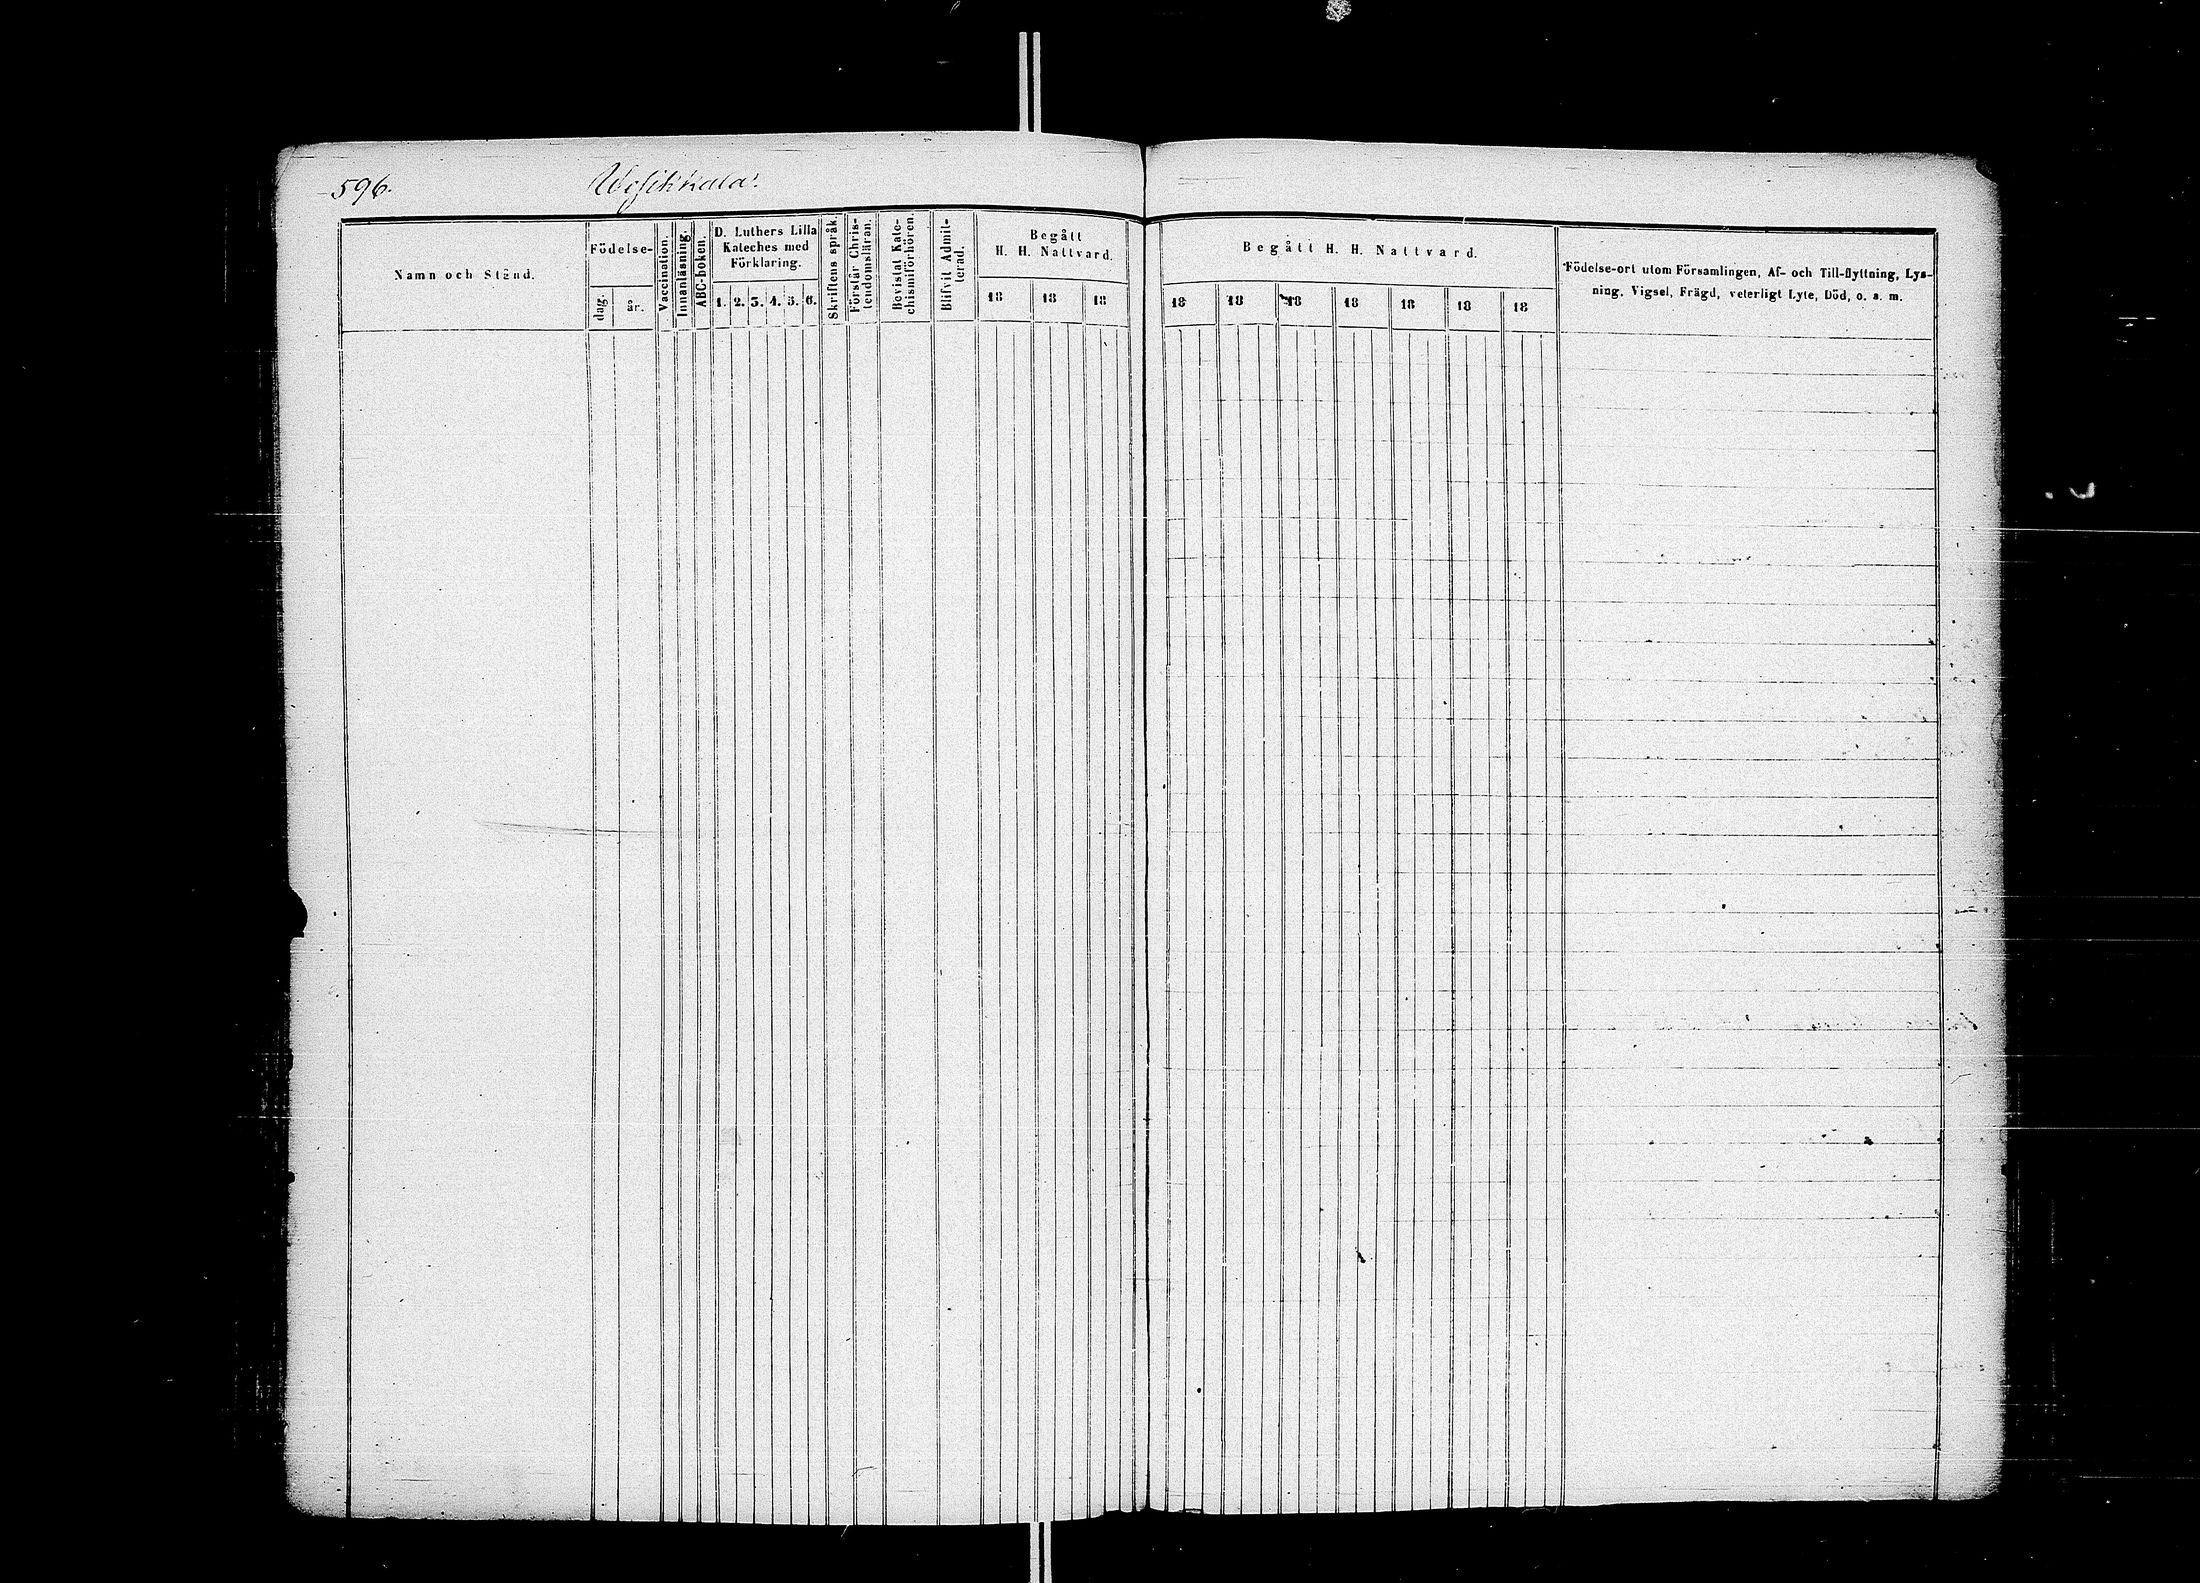 596.
Wesikkala.
Namn och Stånd.
Födelse-
dag.
år.
Vaccination.
Innanläsning.
ABC-boken.
D. Luthers Lilla
Kateches med
Förklaring.
1. 2. 3. 4. 5. 6.
Skriftens språk.
Förstår Chris-
tendomsläran.
Bevistat Kate-
chismiförhören.
Blifvit Admit-
terad.
Begått
H. H. Nattvard.
18 18 18
Begått H. H. Nattvard.
18 18 18 18 18 18 18
Födelse-ort utom Församlingen, Af- och Till-flyttning, Lys-
ning, Vigsel, Frägd, veterligt Lyte, Död, o. s. m.